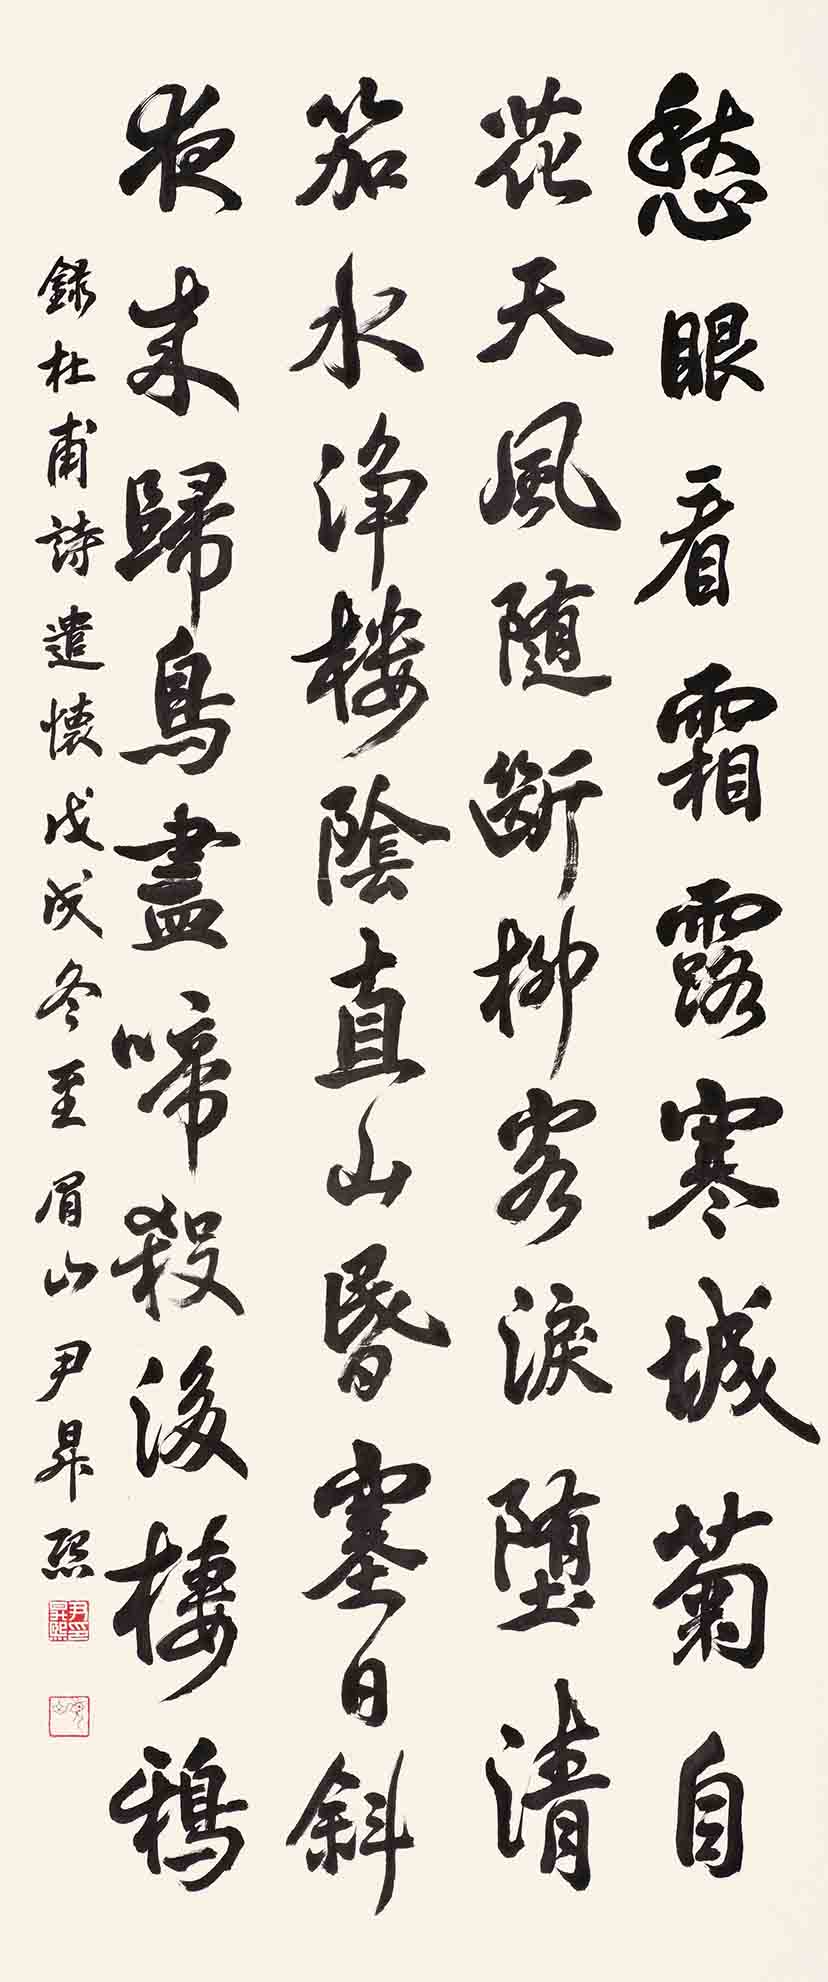 愁眼看霜露寒城菊自
花天風随斷柳客淚堕清
笳水浄樓陰直山昬塞日斜
夜来歸鳥盡啼殺後棲鴉
錄杜甫詩遣懷戊戌冬至 眉山尹昇熙
尹印昇熙